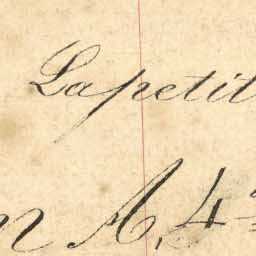 Lapetit
n A, 4